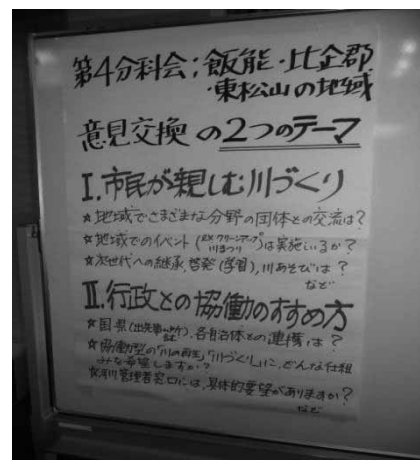 第4分科会;飯能・比企郡
・東松山の地域
意見交換の2つのテーマ
I.市民が親しむ川づくり
☆地域でさまざまな分野の団体との交流は?
☆地域でのイベント(クリーンアップ 川まつり)は実施いるか?
☆次世代への継承,啓発(学習),川あそびは?
など
II.行政との協働のすすめ方
☆国・県(出先事ム所),各自治体との連携は?
☆協働型の「川の再生」「川づくり」に,どんな仕組
みを希望しますか?
☆河川管理者窓口には,具体的要望がありますか?
など